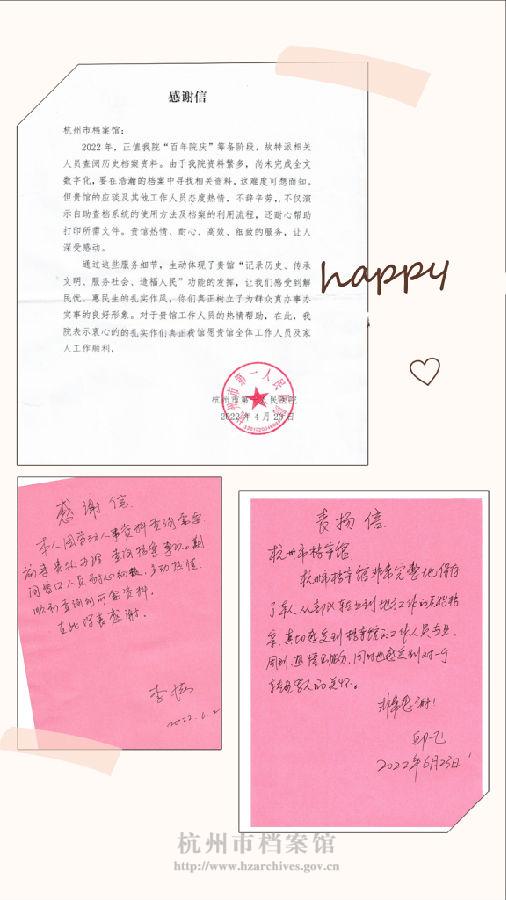 感谢信
杭州市档案馆:
2022年,正值我院“百年院庆”筹备阶段,故特派相关
人员查阅历史档案资料。由于我院资料繁多,尚未完成全文
数字化,要在浩瀚的档案中寻找相关资料,这难度可想而知,
但贵馆的应谈及其他工作人员态度热情,不辞辛劳,不仅演
示自助查档系统的使用方法及档案的利用流程,还耐心帮助
打印所需文件。贵馆热情、耐心、高效、细致的服务,让人
深受感动。
通过这些服务细节,生动体现了贵馆“记录历史、传承
文明、服务社会、造福人民”功能的发挥,让我们感受到解
民忧、惠民生的扎实作风,你们真正树立了为群众真办事办
实事的良好形象。对于贵馆工作人员的热情帮助,在此,我
院表示衷心的
愿贵馆全体工作人员及家
人工作顺利,
杭州市第一人民医院
2022年4月29日
happy
感谢信
本人因
人事资料查询需要
前来
查询档案
期
间窗口人员耐心
,主动热情
顺利查询到所需资料。
在此深表感谢。
李
2022.6.2
表扬信
杭州市档案馆
杭州市档案馆非常完整地保存
了
工作的
档
案,真切感受到档案馆的工作人员专业、
周到、热情
,同时也感受到对
的关怀。
非常感谢!
2022年6月23日
杭州市档案馆
http://www.hzarchives.gov.cn